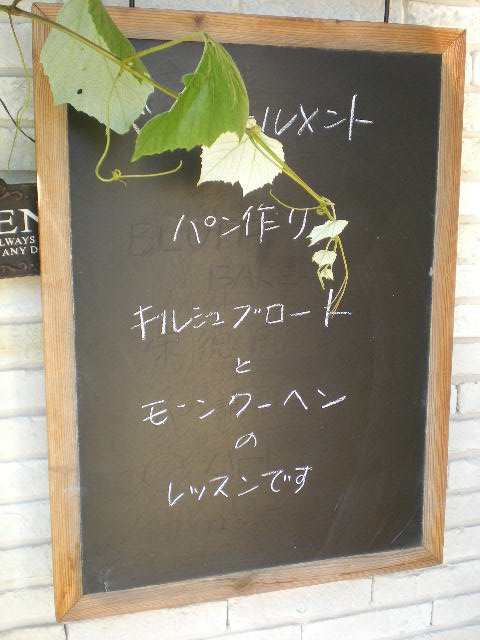 ルメント
パン作り
キルシュブロート
と
モーンクーヘン
の
レッスンです
EN
ALWAYS
ANY D